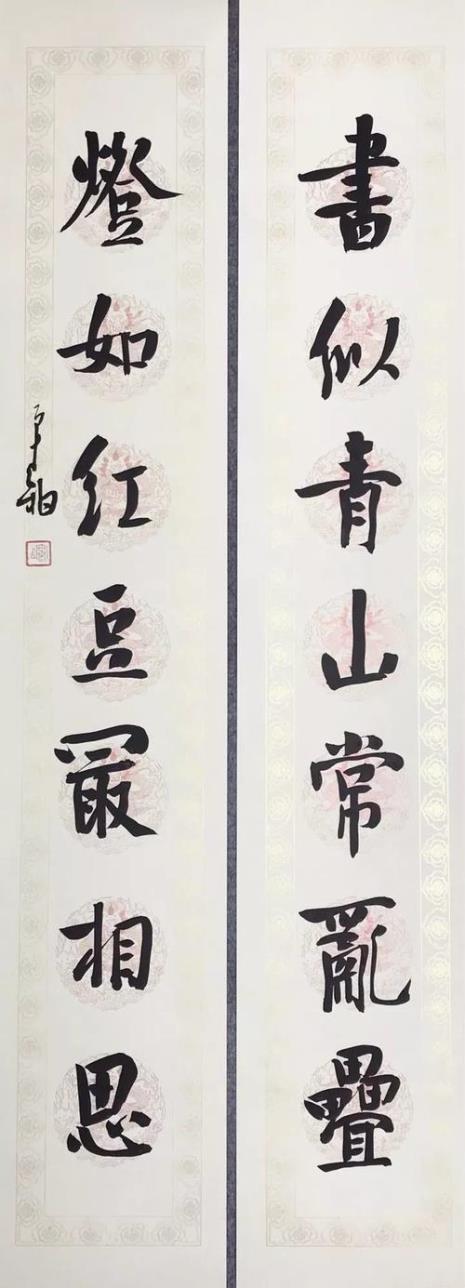 書似青山常亂疊
燈如红豆最相思